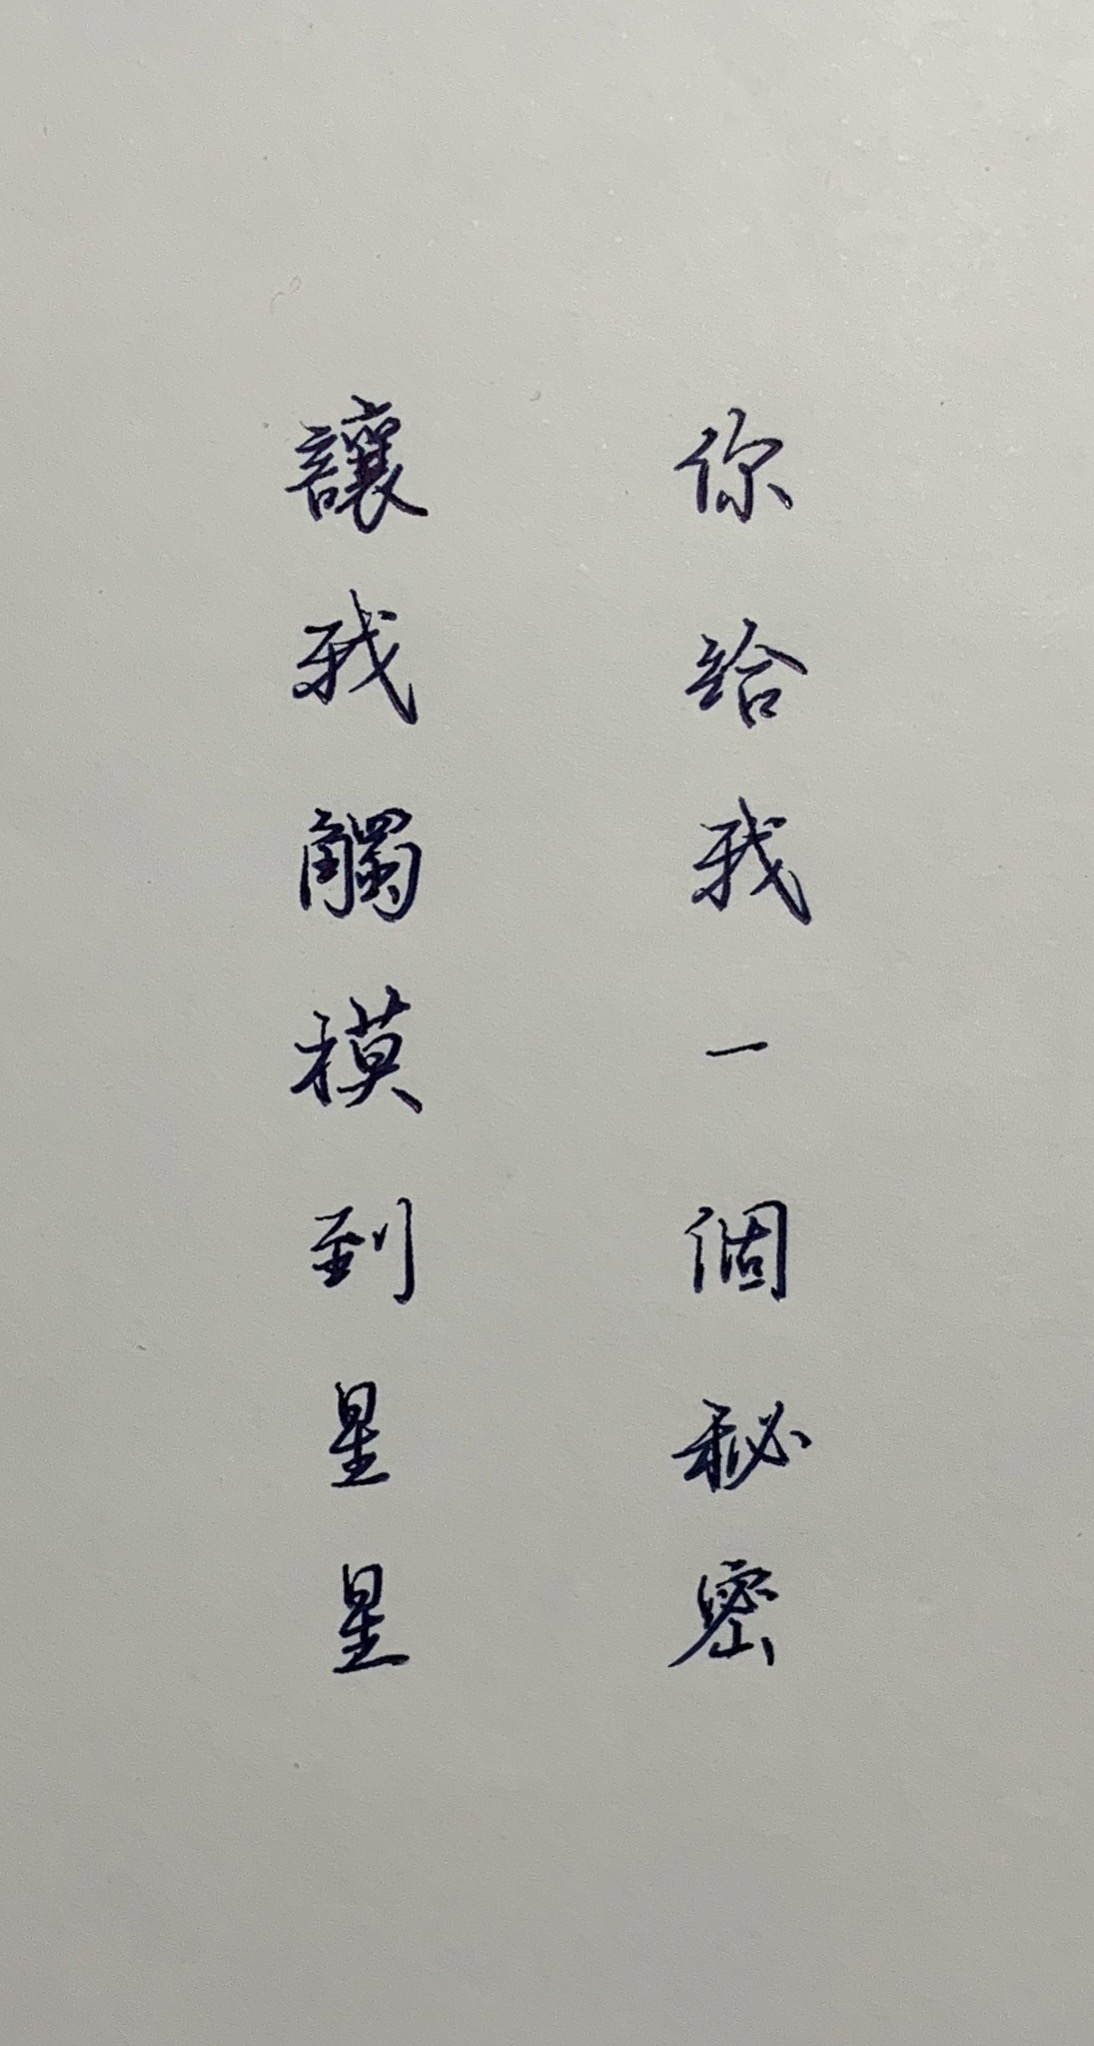 你給我一個秘密
讓我觸摸到星星